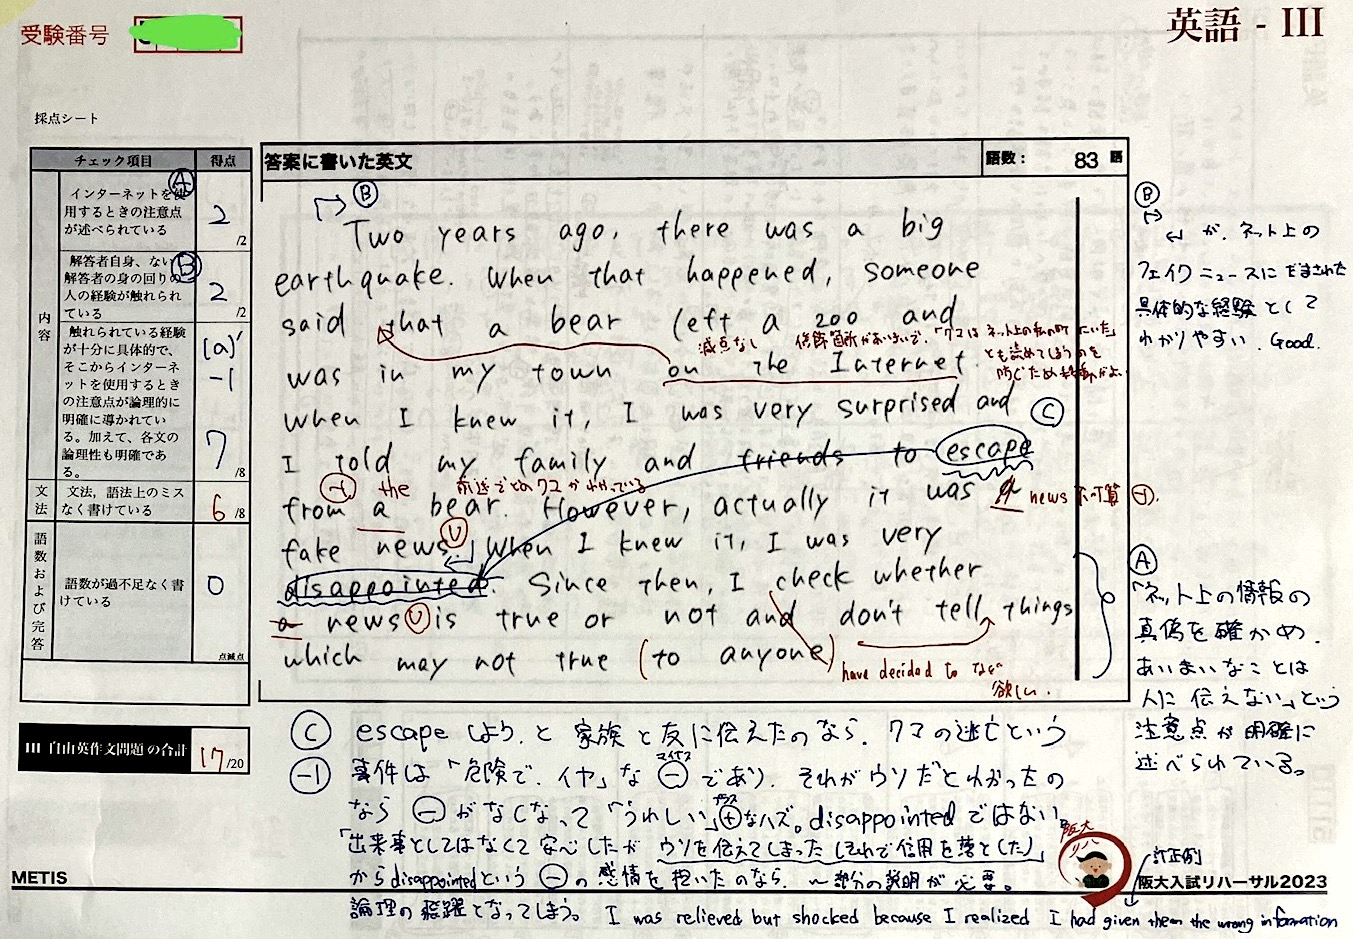 受験番号
英語 - III
採点シート
チェック項目 得点
内容
インターネットを使用するときの注意点が述べられている
A
2
/2
解答者自身、ない解答者の身の回りの人の経験が触れられている
B
2
/2
触れられている経験が十分に具体的で、そこからインターネットを使用するときの注意点が論理的に明確に導かれている。加えて、各文の論理性も明確である。
(a)'
-1
7
/8
文法
文法，語法上のミスなく書けている
6
/8
語数および完答
語数が過不足なく書けている
0
点減点
III 自由英作文問題の合計
17
/20
答案に書いた英文
語数： 83 語
B
Two years ago, there was a big
earthquake. When that happened, someone
said that a bear left a zoo and
減点なし 修飾箇所があいまいで、「クマはネット上の私の町にいた」
とも読めてしまうのを
防ぐため
was in my town on the Internet.
When I knew it, I was very surprised and
C
I told my family and friends to escape
-1 the 前述でどのクマかわかっている
from a bear. However, actually it was a
news 不可算 -1.
fake news. When I knew it, I was very
disappointed. Since then, I check whether
a news is true or not and don't tell things
which may not true (to anyone)
have decided to など
欲しい.
B
が、ネット上の
フェイクニュースにだまされた
具体的な経験として
わかりやすい. Good.
A
「ネット上の情報の
真偽を確かめ、
あいまいなことは
人に伝えない」という
注意点が明確に
述べられている。
C escapeしよう、と家族と友に伝えたのなら、クマの逃亡という
-1 事件は「危険で、イヤ」な⊖であり、それがウソだとわかったの
マイナス
なら⊖がなくなって「うれしい」⊕なハズ。disappointedではない。
プラス
「出来事としてはなくて安心したが ウソを伝えてしまった(それで信用を落とした)」
からdisappointedという⊖の感情を抱いたのなら、〜部分の説明が必要。
論理の飛躍となってしまう。 I was relieved but shocked because I realized I had given them the wrong information
訂正例
阪大
リハ
METIS
阪大入試リハーサル2023